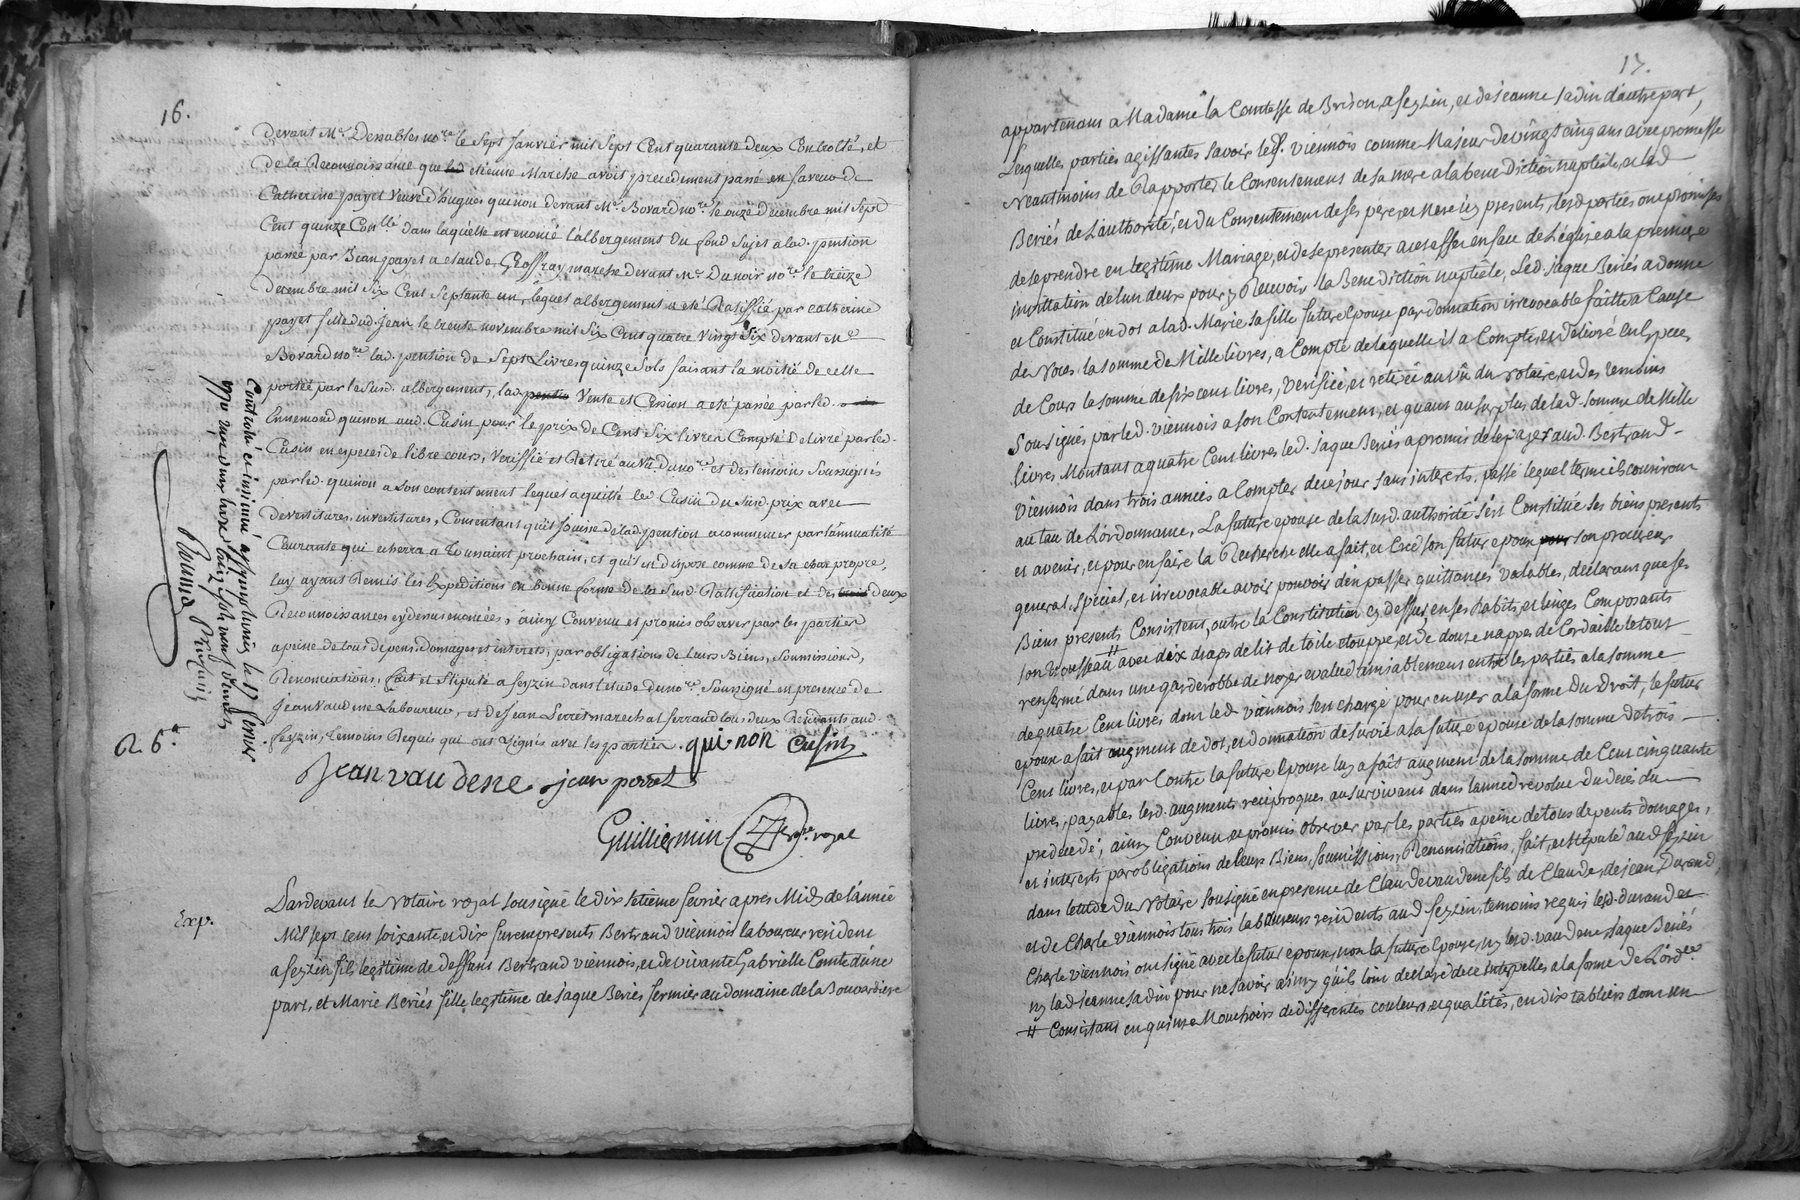 16.
Devant Me. Dessables nore. le Sept Janvier mil Sept Cent quarante deux Controllé, et
de la Reconnoissance que led etienne Mareshe avoit précedement passé en faveur de
Catherine payet Veuve d'hugues quinon devant Me. Bovard nore. le onze decembre mil Sept
Cent quinze Conllé dans laquelle est enoncé l'albergement du fond Sujet a lad. pention
passée par Jean payet a claude Geoffray mareshe devant Me. Dunoir nore. le treize
decembre mil Six Cent Septante un, lequel albergement a eté Ratiffié par catherine
payet fille dud. Jean le trente novembre mil Six Cent quatre Vingt Six devant Me.
Bovard nore. lad. pention de Sept Livres quinze Sols faisant la moitié de celle
portée par le Susd. albergement, lad. pention Vente et Cession a eté passée par led.
Ennemond quinon aud. Cusin pour le prix de Cent Six livres Compté Delivré par led.
Cusin en especes de libre cours, Veriffié et Retiré au Vû du nore. et des temoins Soussignés
par led. quinon a Son contentement lequel a quitté led Cusin du Susd. prix avec
devestitures, investitures, Consentant qu'il Jouisse de lad. pention a commencer par l'annuatité
Courante qui echerra a Toussaint prochain, et qu'il en dispose comme de Sa chose propre,
luy ayant Remis les Expeditions en bonne forme de la Susd. Ratiffication et des trois deux
Reconnoissances cy dessus enoncées, ainsy Convenu et promis observer par les parties
a peine de tous depens, domages et interets, par obligations de Leurs Biens, Soumissions,
Renonciations, fait et Stipulé a feyzin dans l'etude du nore. Soussigné en presence de
Jean Vaudene Laboureur, et de Jean Perret marechal ferrand tous deux Residants aud.
feyzin, temoins Requis qui ont Signés avec les parties. qui non Cusin
Jean vau dene. jean perret
Guilliermin nore. royal
Controllé et insinué a le 17 fevrier
1770 reçu
R 6.
Exp.
Pardevant le Notaire royal sousigné le dix setieme fevrier apres Midy de l'année
Mil sept cens soixante et dix furent presents Bertrand viennois laboureur resident
a feyzin fils legitime de deffunt Bertrand viennois, et de vivante Gabrielle Comte d'une
part, et Marie Beriés fille legitime de Jaque Beriés fermier au domaine de la Bouvardiere
17.
appartenant a Madame la Comtesse de Brison, a feyzin, et de Jeanne Jadin d'autre part,
Lesquelles parties agissantes savoir led. Viennois comme Majeur de vingt cinq ans avec promesse
Neantmoins de Rapporter le Consentement de sa mere a la benediction nuptiale, et lad
Beriés de L'authorité, et du Consentement de ses pere et mere icy presents, lesd. parties ont promises
de se prendre en legitime Mariage, et de se presenter a cet effet en face de L'eglise a la premiere
invitation de lun deux pour y Recevoir la Benediction nuptiale, Led. Jaque Beriés a donné
et Constitué en dot a lad. Marie sa fille future Epouse par donnation irrevocable faitte a Cause
de Noces la somme de Mille livres, a Compte de laquelle il a Compté, et delivré en Especes
de Cours la somme de six cent livres, verifiée, et retirée au vû du Notaire, et des temoins
Sousignés par led. viennois a son Contentement, et quant au surplus de lad. somme de Mille
livres Montant a quatre Cent livres led. Jaque Beriés a promis de le payer aud. Bertrand
Viennois dans trois années a Compter de ce jour sans interests, passé lequel terme ils couriront
au taux de L'ordonnance, La future epouse de la susd. authorité s'est Constitué ses biens presents
et avenir, et pour en faire la Recherche elle a fait, et Créé son futur epoux pour son procureur
general, special, et irrevocable avec pouvoir d'en passer quittances valables, declarant que ses
Biens presents Consistent, outre la Constitution cy dessus, en ses habits, et linges Composants
son Trousseau # avec dix draps de lit de toile etouppe, et de douze nappes de Cordaille le tout
renfermé dans une garderobbe de noyer evalué amiablement entre les parties a la somme
de quatre Cent livres dont led viennois s'est chargé pour en user a la forme du Droit, le futur
epoux a fait augment de dot, et donnation de survie a sa future epouse de la somme de trois
Cent livres, et par Contre la future Epouse luy a fait augment de la somme de Cent cinquante
livres, payables lesd. augments reciproques au survivant dans l'année revolue du decés du
predecedé, ainsy Convenu et promis observer par les parties a peine de tous depents domages,
et interests par obligations de leurs Biens, soumissions, Renonciations, fait, et stipulé aud feyzin
dans letude du Notaire sousigné en presence de Claude vaudene fils de Claude, de jean Durand,
et de Charle viennois tous trois laboureurs residents aud feyzin, temoins requis lesd. durand et
Charle viennois ont signé avec le futur epoux, non la future Epouse, ny lesd. vaudene, Jaque Beriés
ny lad jeanne Jadin pour ne savoir ainsy qu'ils l'ont declaré de ce interpellés a la forme de L'ordce.
# Consistant en quinze Mouchoirs de differentes couleurs, et qualités, en dix tabliers dont un